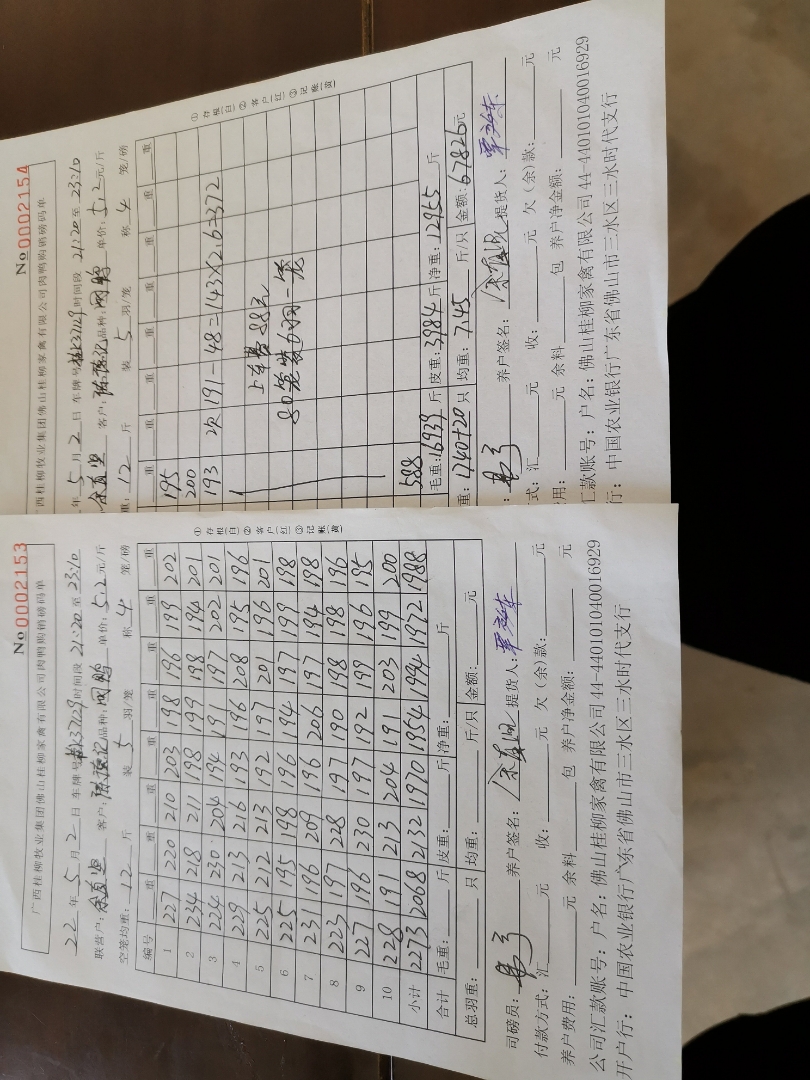 No 0002153
广西桂柳牧业集团佛山桂柳家禽有限公司肉鸭购销磅码单
22 年 5 月 2 日 车牌号 37129 时间段 21:20 至 23:10
联营户: 客户: 品种: 单价: 5.2 元/斤
空笼均重: 12 斤 装 5 羽/笼 称 4 笼/磅
编号 重 重 重 重 重 重 重 重
1 227 220 210 203 198 196 199 202
2 234 218 211 198 199 198 194 201
3 224 230 204 194 191 197 202 201
4 229 213 216 193 196 208 195 196
5 225 212 213 192 197 201 196 201
6 225 195 198 196 194 197 199 198
7 231 196 209 196 206 197 194 198
8 223 197 228 197 190 198 198 196
9 227 196 230 197 192 199 196 195
10 228 191 213 204 191 203 199 200
小计 2273 2068 2132 1970 1954 1994 1972 1988
合计 毛重: 斤 皮重: 斤 净重: 斤
总羽重: 只 均重: 斤/只 金额: 元
司磅员: 养户签名: 提货人:
付款方式: 汇 元 收: 元 欠(余)款: 元
养户费用: 元 余料 包 养户净金额: 元
公司汇款账号: 户名: 佛山桂柳家禽有限公司 44-440101040016929
开户行: 中国农业银行广东省佛山市三水区三水时代支行
①存根(白)②客户(红)③记账(黄)
No 0002154
广西桂柳牧业集团佛山桂柳家禽有限公司肉鸭购销磅码单
年 5 月 2 日 车牌号 37129 时间段 21:20 至 23:10
客户: 品种: 单价: 5.2 元/斤
重: 12 斤 装 5 羽/笼 称 4 笼/磅
重 重 重 重 重 重 重
195
200
193 次191-48=143×2.6=372
上车费 88元
80笼装6羽一笼
588
毛重: 16939 斤 皮重: 3984 斤 净重: 12955 斤
重: 1740+20 只 均重: 7.45 斤/只 金额: 67826 元
: 养户签名: 提货人:
式: 汇 元 收: 元 欠(余)款: 元
用: 元 余料 包 养户净金额: 元
汇款账号: 户名: 佛山桂柳家禽有限公司 44-440101040016929
行: 中国农业银行广东省佛山市三水区三水时代支行
①存根(白)②客户(红)③记账(黄)